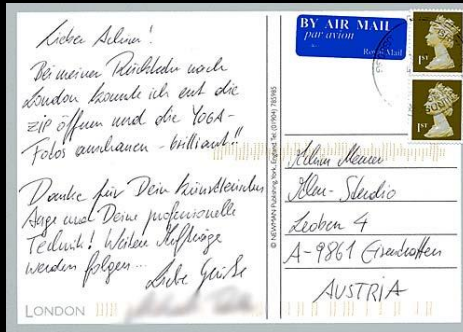 Lieber Achim!
Bei meiner Rückkehr nach
London konnte ich erst die
ZIP öffnen und die YOGA-
Fotos anschauen - brilliant!!
Danke für Dein künstlerisches
Auge und Deine professionelle
Technik! Weitere Aufträge
werden folgen...
Liebe Grüße
LONDON
© NEWMAN Publishing, York, England Tel: (01904) 785985
BY AIR MAIL
par avion
Royal Mail
1ST
1ST
Achim
Studio
Leoben 4
A-9861
AUSTRIA